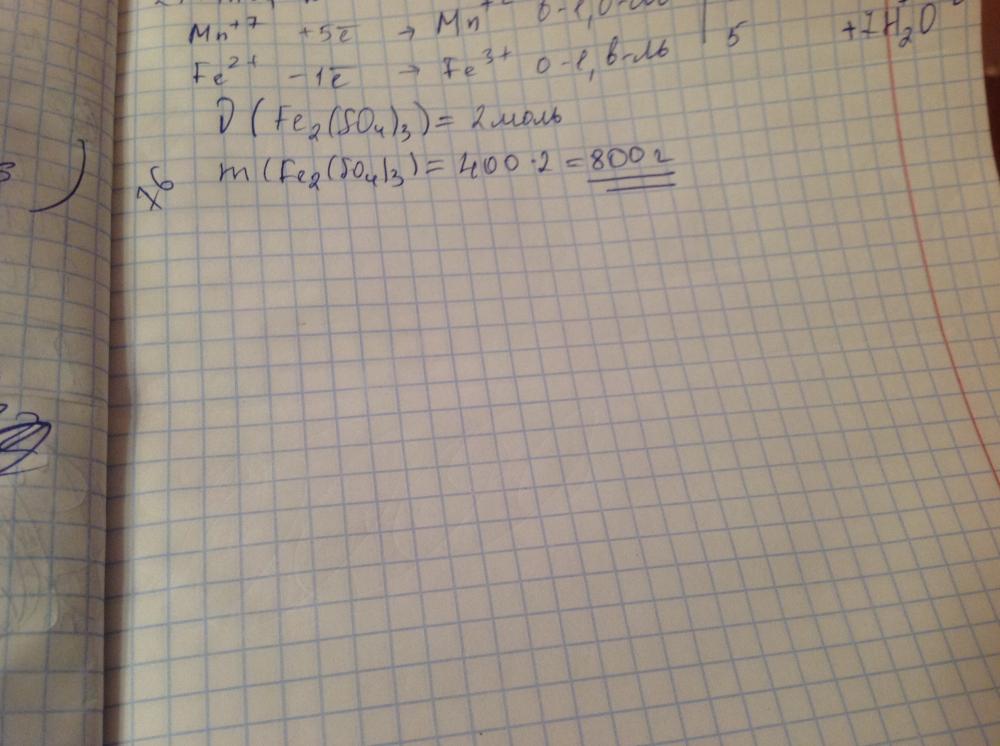 Mn⁺⁷ +5ē → Mn⁺² в-е, о-ль | +7H₂O
Fe²⁺ -1ē → Fe³⁺ о-е, в-ль | 5
ν(Fe₂(SO₄)₃) = 2моль
m(Fe₂(SO₄)₃) = 400·2 = 800 г